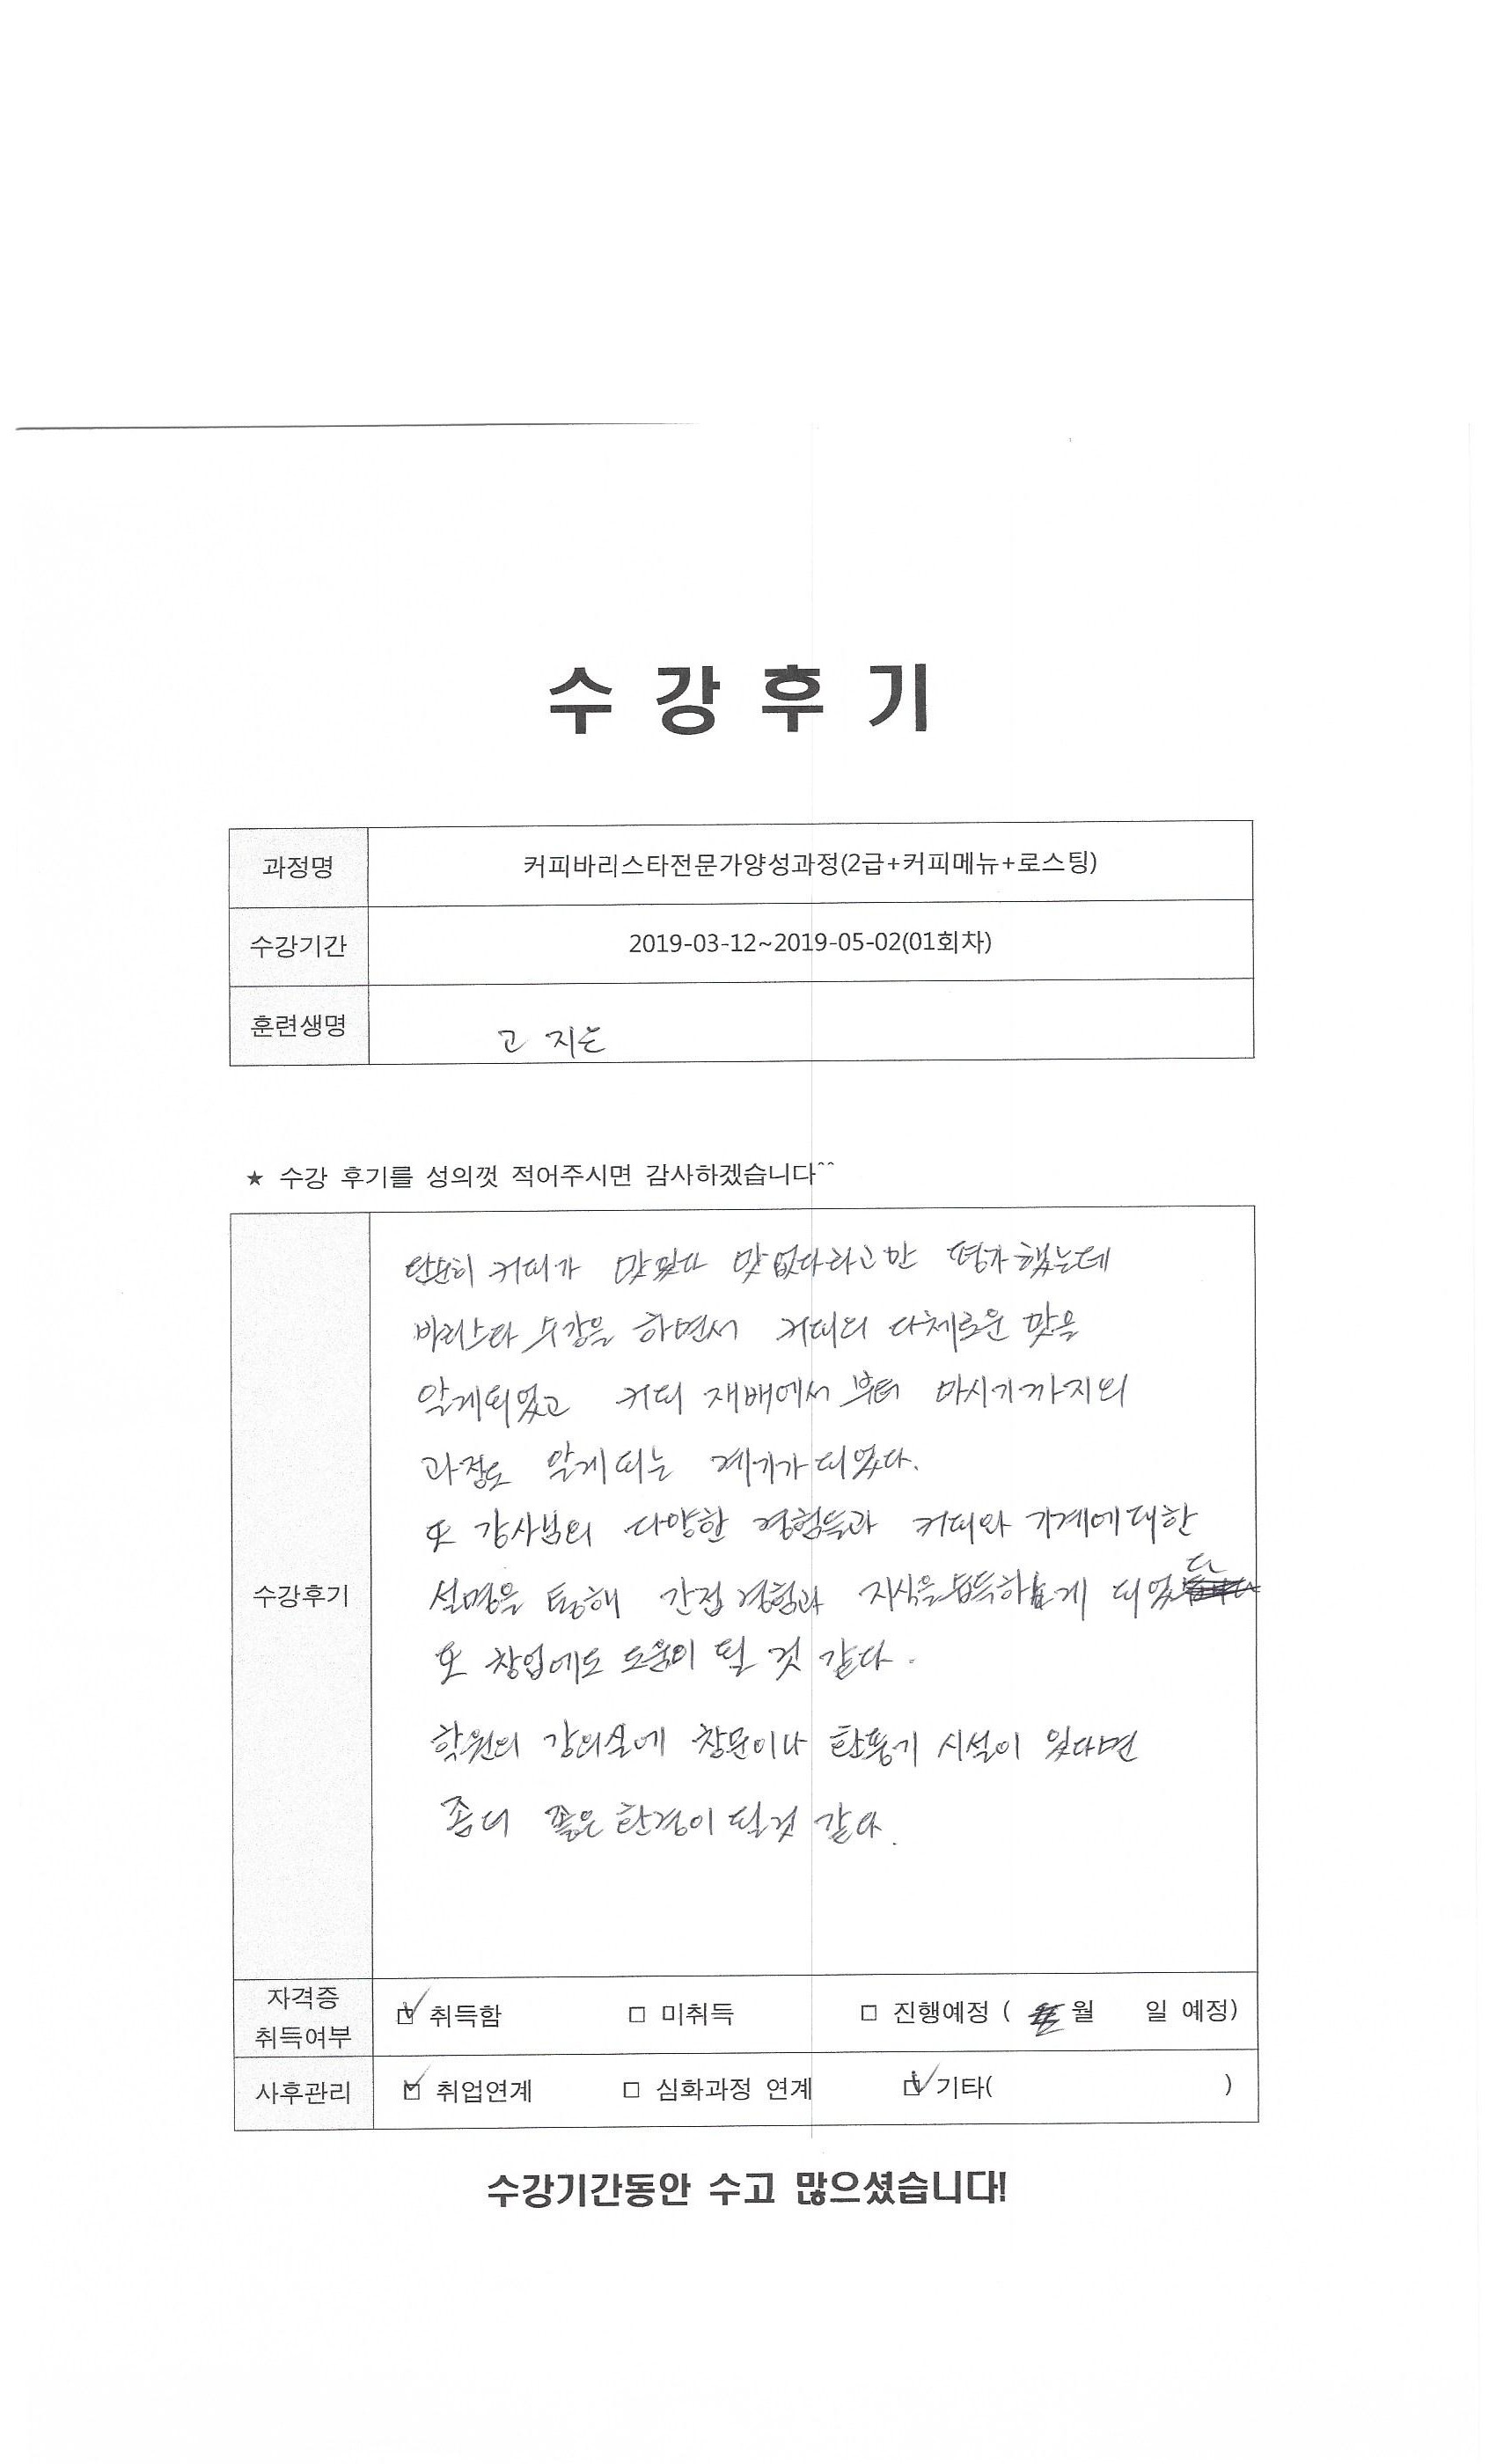 수 강 후 기
과정명 커피바리스타전문가양성과정(2급+커피메뉴+로스팅)
수강기간 2019-03-12~2019-05-02(01회차)
훈련생명 고 지은
★ 수강 후기를 성의껏 적어주시면 감사하겠습니다^^
단순히 커피가 맛있다 맛없다라고만 평가했는데
바리스타 수강을 하면서 커피의 다채로운 맛을
알게되었고 커피 재배에서 부터 마시기까지의
과정도 알게 되는 계기가 되었다.
또 강사님의 다양한 경험들과 커피와 기계에 대한
수강후기
설명을 통해 간접 경험과 지식을 습득하게 되었다
또 창업에도 도움이 될 것 같다.
학원의 강의실에 창문이나 환풍기 시설이 있다면
좀더 좋은 환경이 될것 같다.
자격증 취득여부 취득함 □ 미취득 □ 진행예정 ( 월 일 예정)
사후관리 취업연계 □ 심화과정 연계 기타( )
수강기간동안 수고 많으셨습니다!